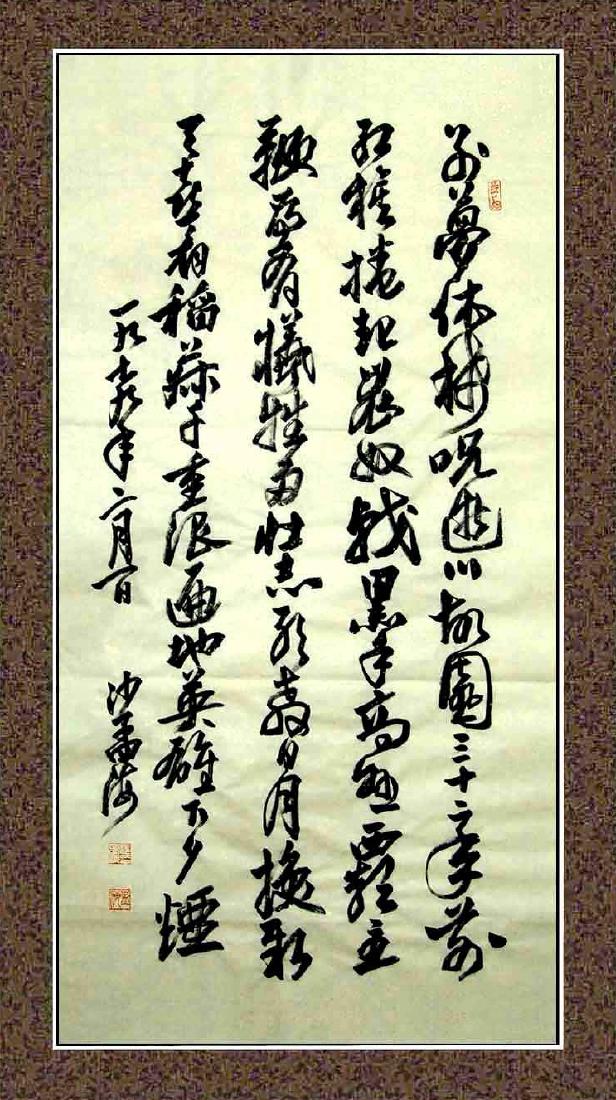 别夢依稀咒逝川故園三十二年前
红旗捲起農奴戟黑手高懸霸主
鞭為有犧牲多壮志敢教日月換新
天喜看稻菽千重浪遍地英雄下夕煙
一九年月
沙孟海